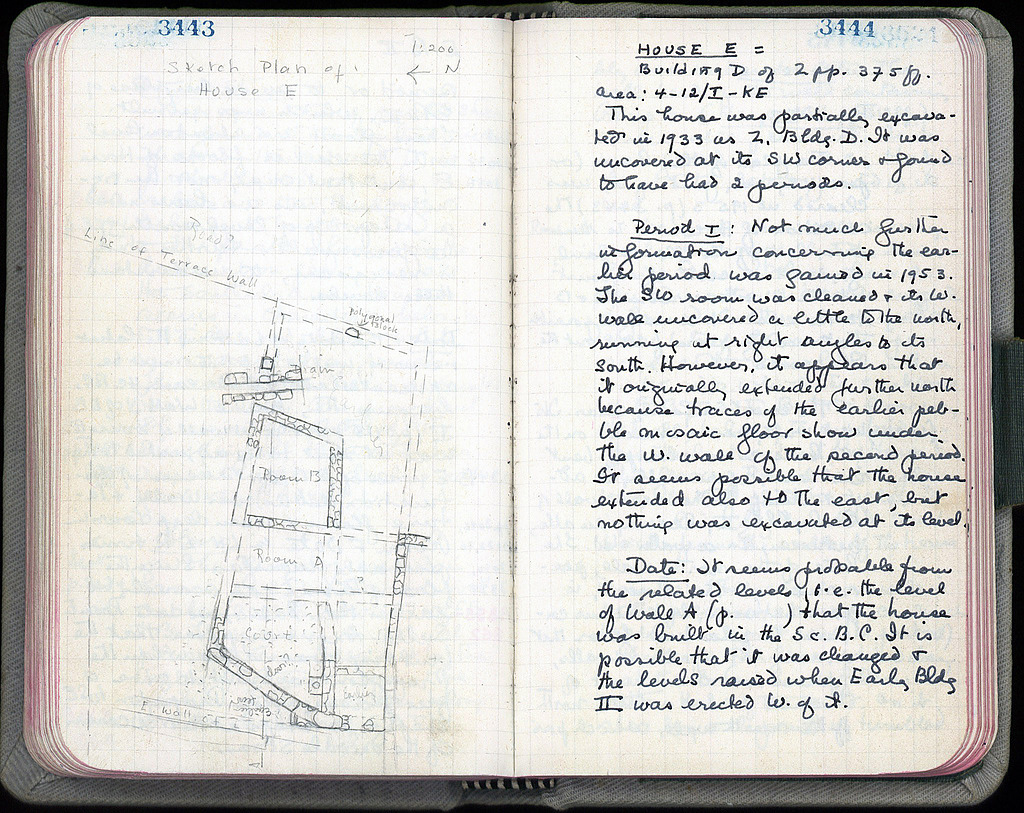 3443
1:200
Sketch Plan of
← N
House E
Road?
Line of Terrace Wall
polygonal
block
Drain
Room B
Room A
?
Court
drain?
earlier
E. wall of I
3444
HOUSE E =
Building D of Z pp. 375 ff.
area: 4-12/I-KE
This house was partially excava-
ted in 1933 as Z, Bldg. D. It was
uncovered at its SW corner & found
to have had 2 periods.
Period I: Not much further
information concerning the ear-
lier period was gained in 1953.
The SW room was cleaned & its W.
wall uncovered a little to the north,
running at right angles to its
south. However, it appears that
it originally extended further north
because traces of the earlier peb-
ble mosaic floor show under
the W. wall of the second period.
It seems possible that the house
extended also to the east, but
nothing was excavated at its level.
Date: It seems probable from
the related levels, i.e. the level
of Wall A (p. ) that the house
was built in the 5 c. B.C. It is
possible that it was changed &
the levels raised when Early Bldg
II was erected W. of it.